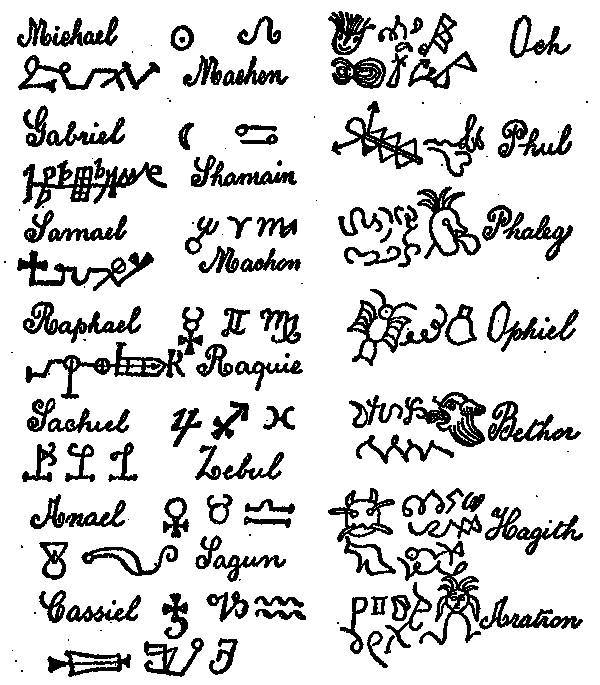 Michael
Machen
Gabriel
Shamain
Samael
Machon
Raphael
Raquie
Sachiel
Zebul
Anael
Sagun
Cassiel
Och
Phul
Phaleg
Ophiel
Bethor
Hagith
Aratron